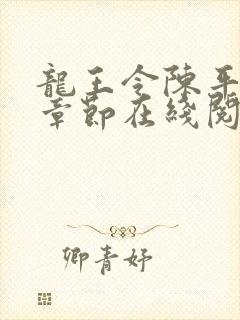 龍王令陳平
章節在綫閱
卿青妤